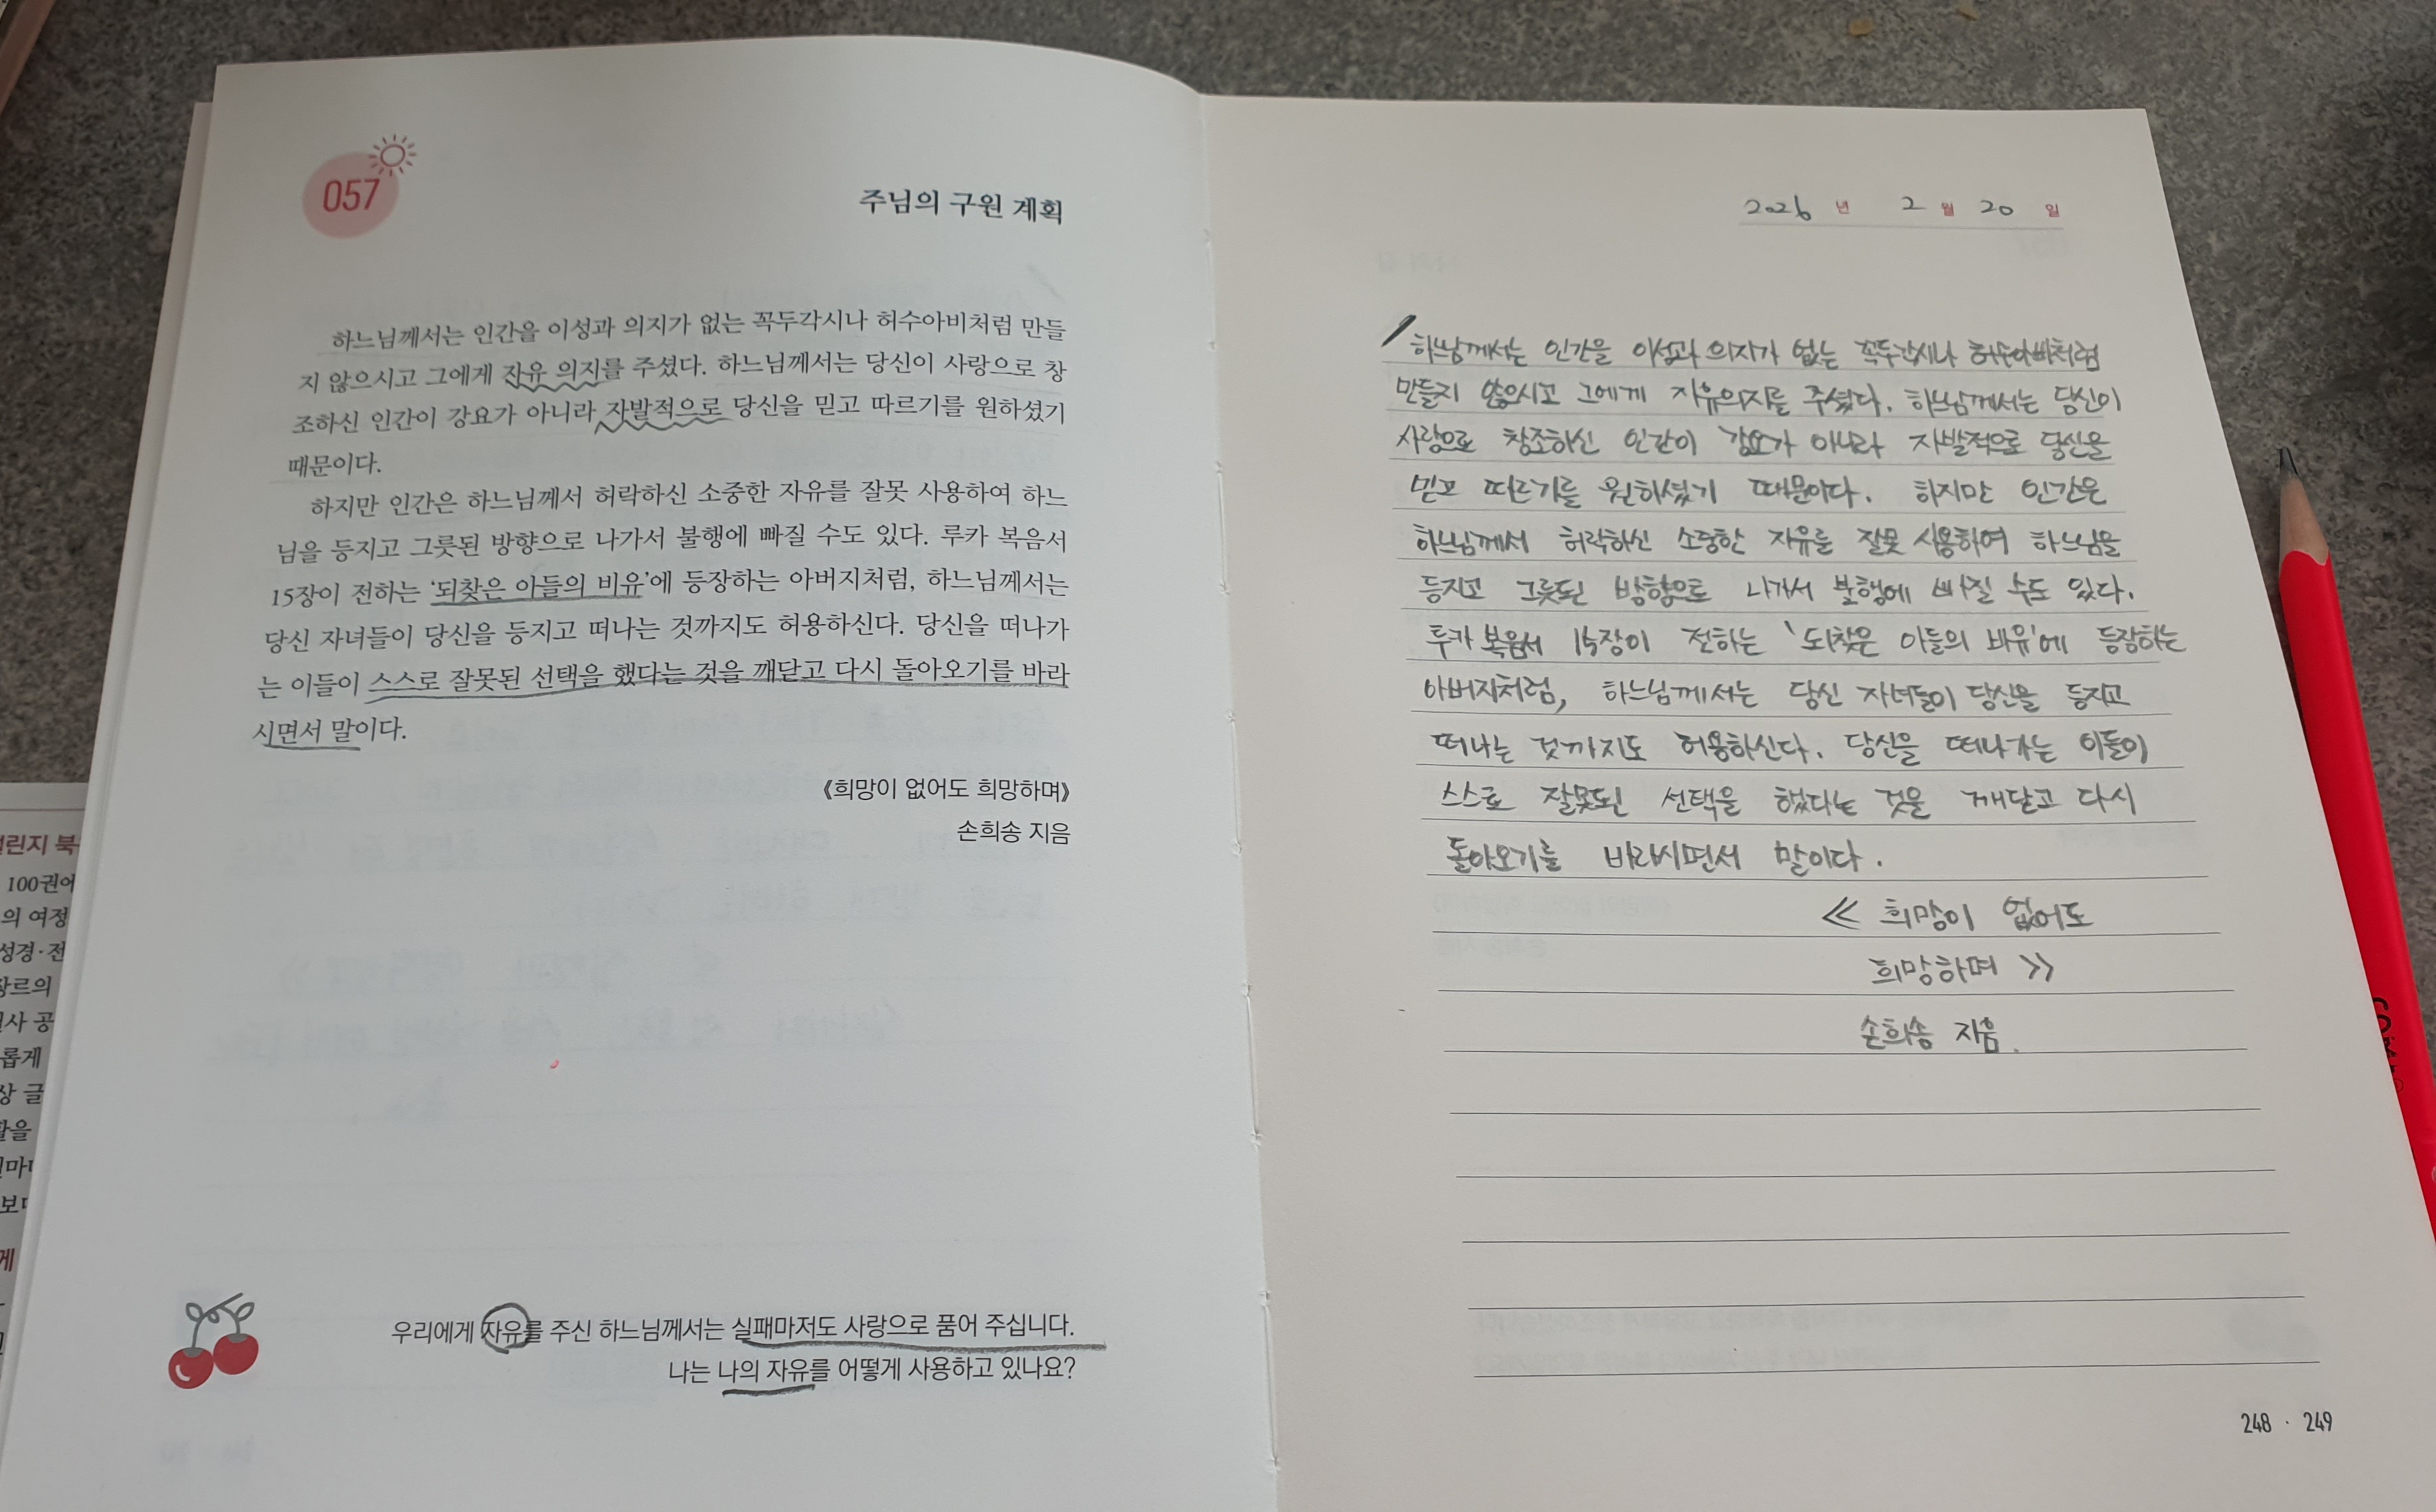 057
주님의 구원 계획
하느님께서는 인간을 이성과 의지가 없는 꼭두각시나 허수아비처럼 만들
지 않으시고 그에게 자유 의지를 주셨다. 하느님께서는 당신이 사랑으로 창
조하신 인간이 강요가 아니라 자발적으로 당신을 믿고 따르기를 원하셨기
때문이다.
하지만 인간은 하느님께서 허락하신 소중한 자유를 잘못 사용하여 하느
님을 등지고 그릇된 방향으로 나가서 불행에 빠질 수도 있다. 루카 복음서
15장이 전하는 ‘되찾은 아들의 비유’에 등장하는 아버지처럼, 하느님께서는
당신 자녀들이 당신을 등지고 떠나는 것까지도 허용하신다. 당신을 떠나가
는 이들이 스스로 잘못된 선택을 했다는 것을 깨닫고 다시 돌아오기를 바라
시면서 말이다.
《희망이 없어도 희망하며》
손희송 지음
우리에게 자유를 주신 하느님께서는 실패마저도 사랑으로 품어 주십니다.
나는 나의 자유를 어떻게 사용하고 있나요?
2026 년 2 월 20 일
하느님께서는 인간을 이성과 의지가 없는 꼭두각시나 허수아비처럼
만들지 않으시고 그에게 자유의지를 주셨다. 하느님께서는 당신이
사랑으로 창조하신 인간이 강요가 아니라 자발적으로 당신을
믿고 따르기를 원하셨기 때문이다. 하지만 인간은
하느님께서 허락하신 소중한 자유를 잘못 사용하여 하느님을
등지고 그릇된 방향으로 나가서 불행에 빠질 수도 있다.
루카 복음서 15장이 전하는 '되찾은 아들의 비유'에 등장하는
아버지처럼, 하느님께서는 당신 자녀들이 당신을 등지고
떠나는 것까지도 허용하신다. 당신을 떠나가는 이들이
스스로 잘못된 선택을 했다는 것을 깨닫고 다시
돌아오기를 바라시면서 말이다.
≪ 희망이 없어도
희망하며 ≫
손희송 지음.
248 · 249
100권
의 여정
성경·전
장르의
롭게
상 글